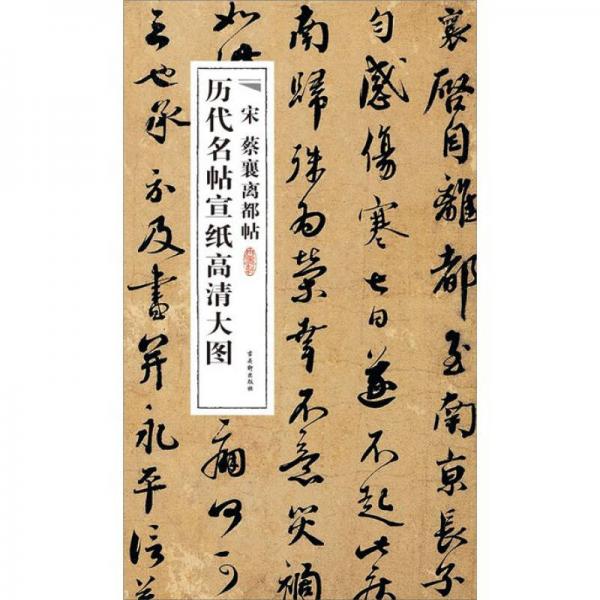 襄啓自離都至南京長子
匀感傷寒七日遂不起此疾
南歸殊為榮幸不意災禍
宋 蔡襄离都帖
历代名帖宣纸高清大图
如此
痛何可
言也承示及書并永平信